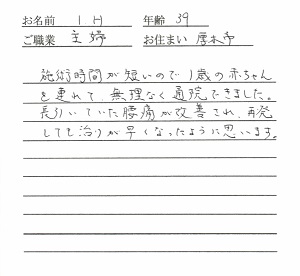 お名前 I.H 年齢 39
ご職業 主婦 お住まい 厚木市
施術時間が短いので1歳の赤ちゃん
を連れて、無理なく通院できました。
長引いていた腰痛が改善され、再発
しても治りが早くなったように思います。